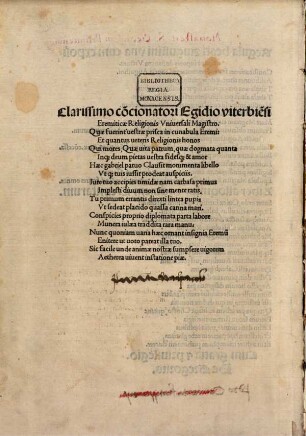 BIBLIOTHECA
REGIA
MONACENSIS.
Clarissimo cōcionatori Egidio viterbiēsi
Eremiticæ Religionis Vniuersali Magistro.
Quæ fuerint uestræ prisca in cunabula Eremi
Et quantus ueteris Religionis honos
Qui mores Quæ uita patrum, quæ dogmata quanta
Inque deum pietas uestra fidesque & amor
Hæc gabriel paruo Clausit monumenta libello
Vt que tuis iussit prodeat auspiciis.
Iure tuo accipies timidæ nam carbasa primus
Implesti diuum non sine mente ratis,
Tu primum errantis direxti lintea puppis
Vt sedeat placido quassa carina mari.
Conspicies proprio diplomata parta labore
Munera tulata traddita rara manu.
Nunc quoniam uana hæc ornant insignia Eremū
Enitere ut noto pareat illa tuo.
Sic facile unde animæ nostræ sumpsere uigorem
Aetherea uiuent instatione piæ.